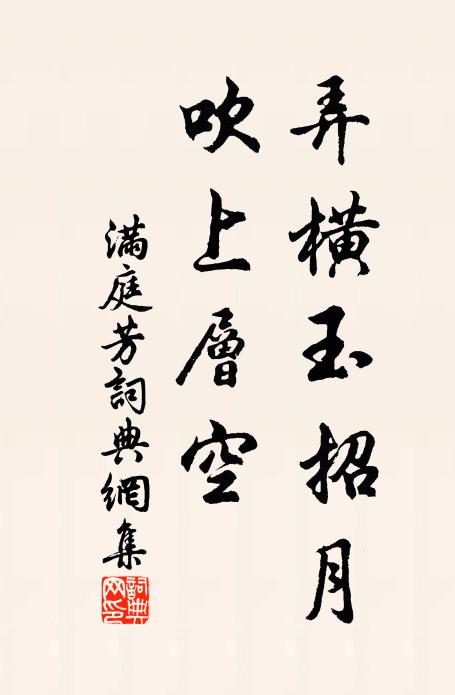 弄橫玉招月
吹上層空
滿庭芳詞典網集
詞典网印